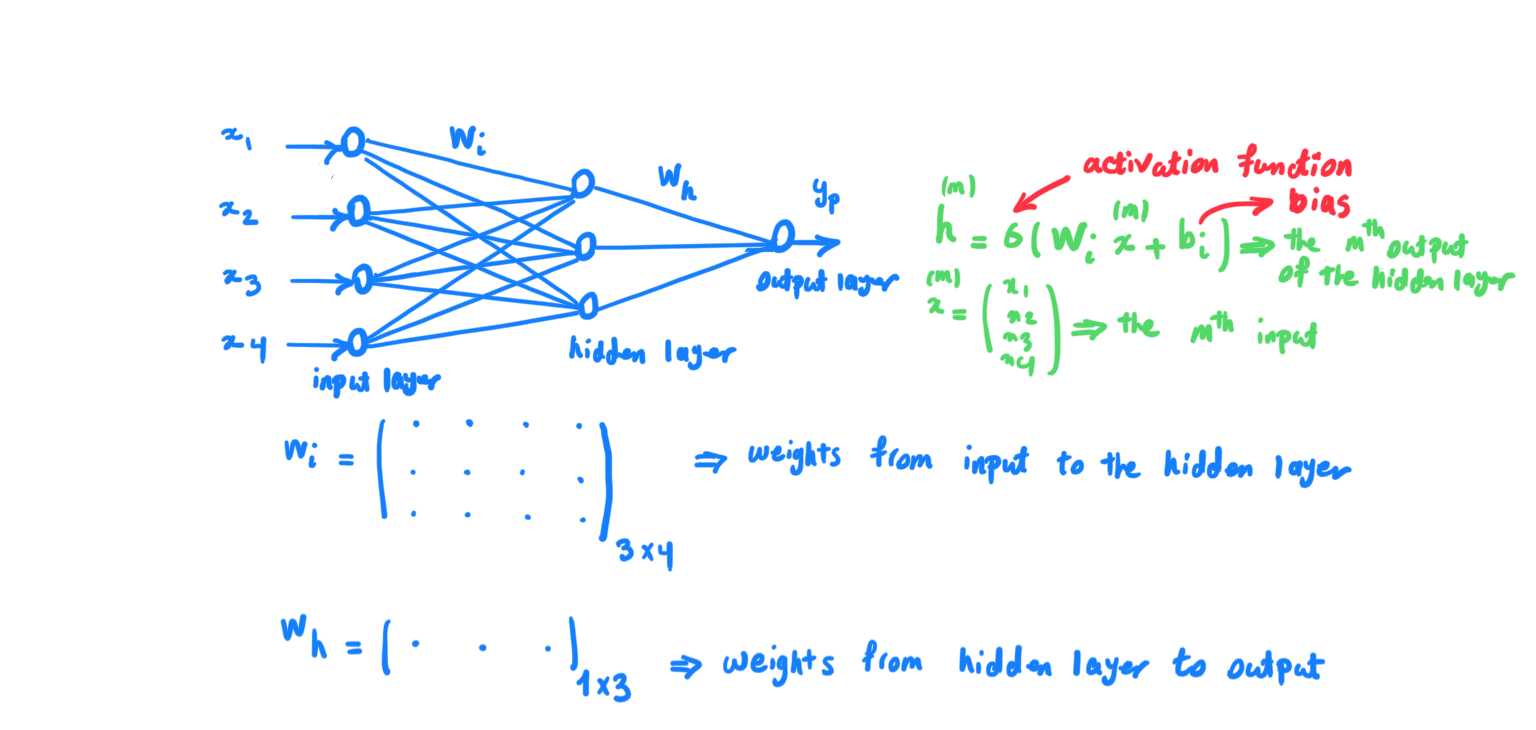 x₁
x₂
x₃
x₄
input layer
Wᵢ
hidden layer
Wₕ
yₚ
output layer
activation function
bias
h⁽ᵐ⁾ = σ(Wᵢ x⁽ᵐ⁾ + bᵢ) ⇒ the mᵗʰ output
of the hidden layer
x⁽ᵐ⁾ = (x₁
x2
x3
x4) ⇒ the mᵗʰ input
Wᵢ = ( . . . .
. . . .
. . . . ) 3×4 ⇒ weights from input to the hidden layer
Wₕ = ( . . . ) 1×3 ⇒ weights from hidden layer to output